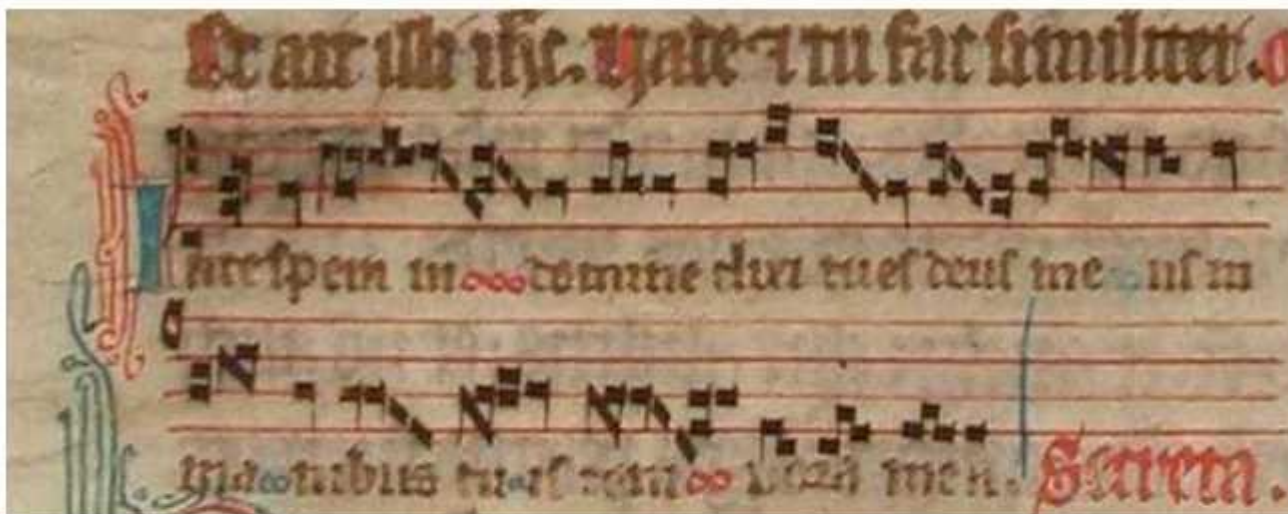 Et ait illi ihc. Uade ⁊ tu fac similiter.
In te spem in domine dixi tu es deus me us in
ma nibus tuis tem pora mea. Secreta.